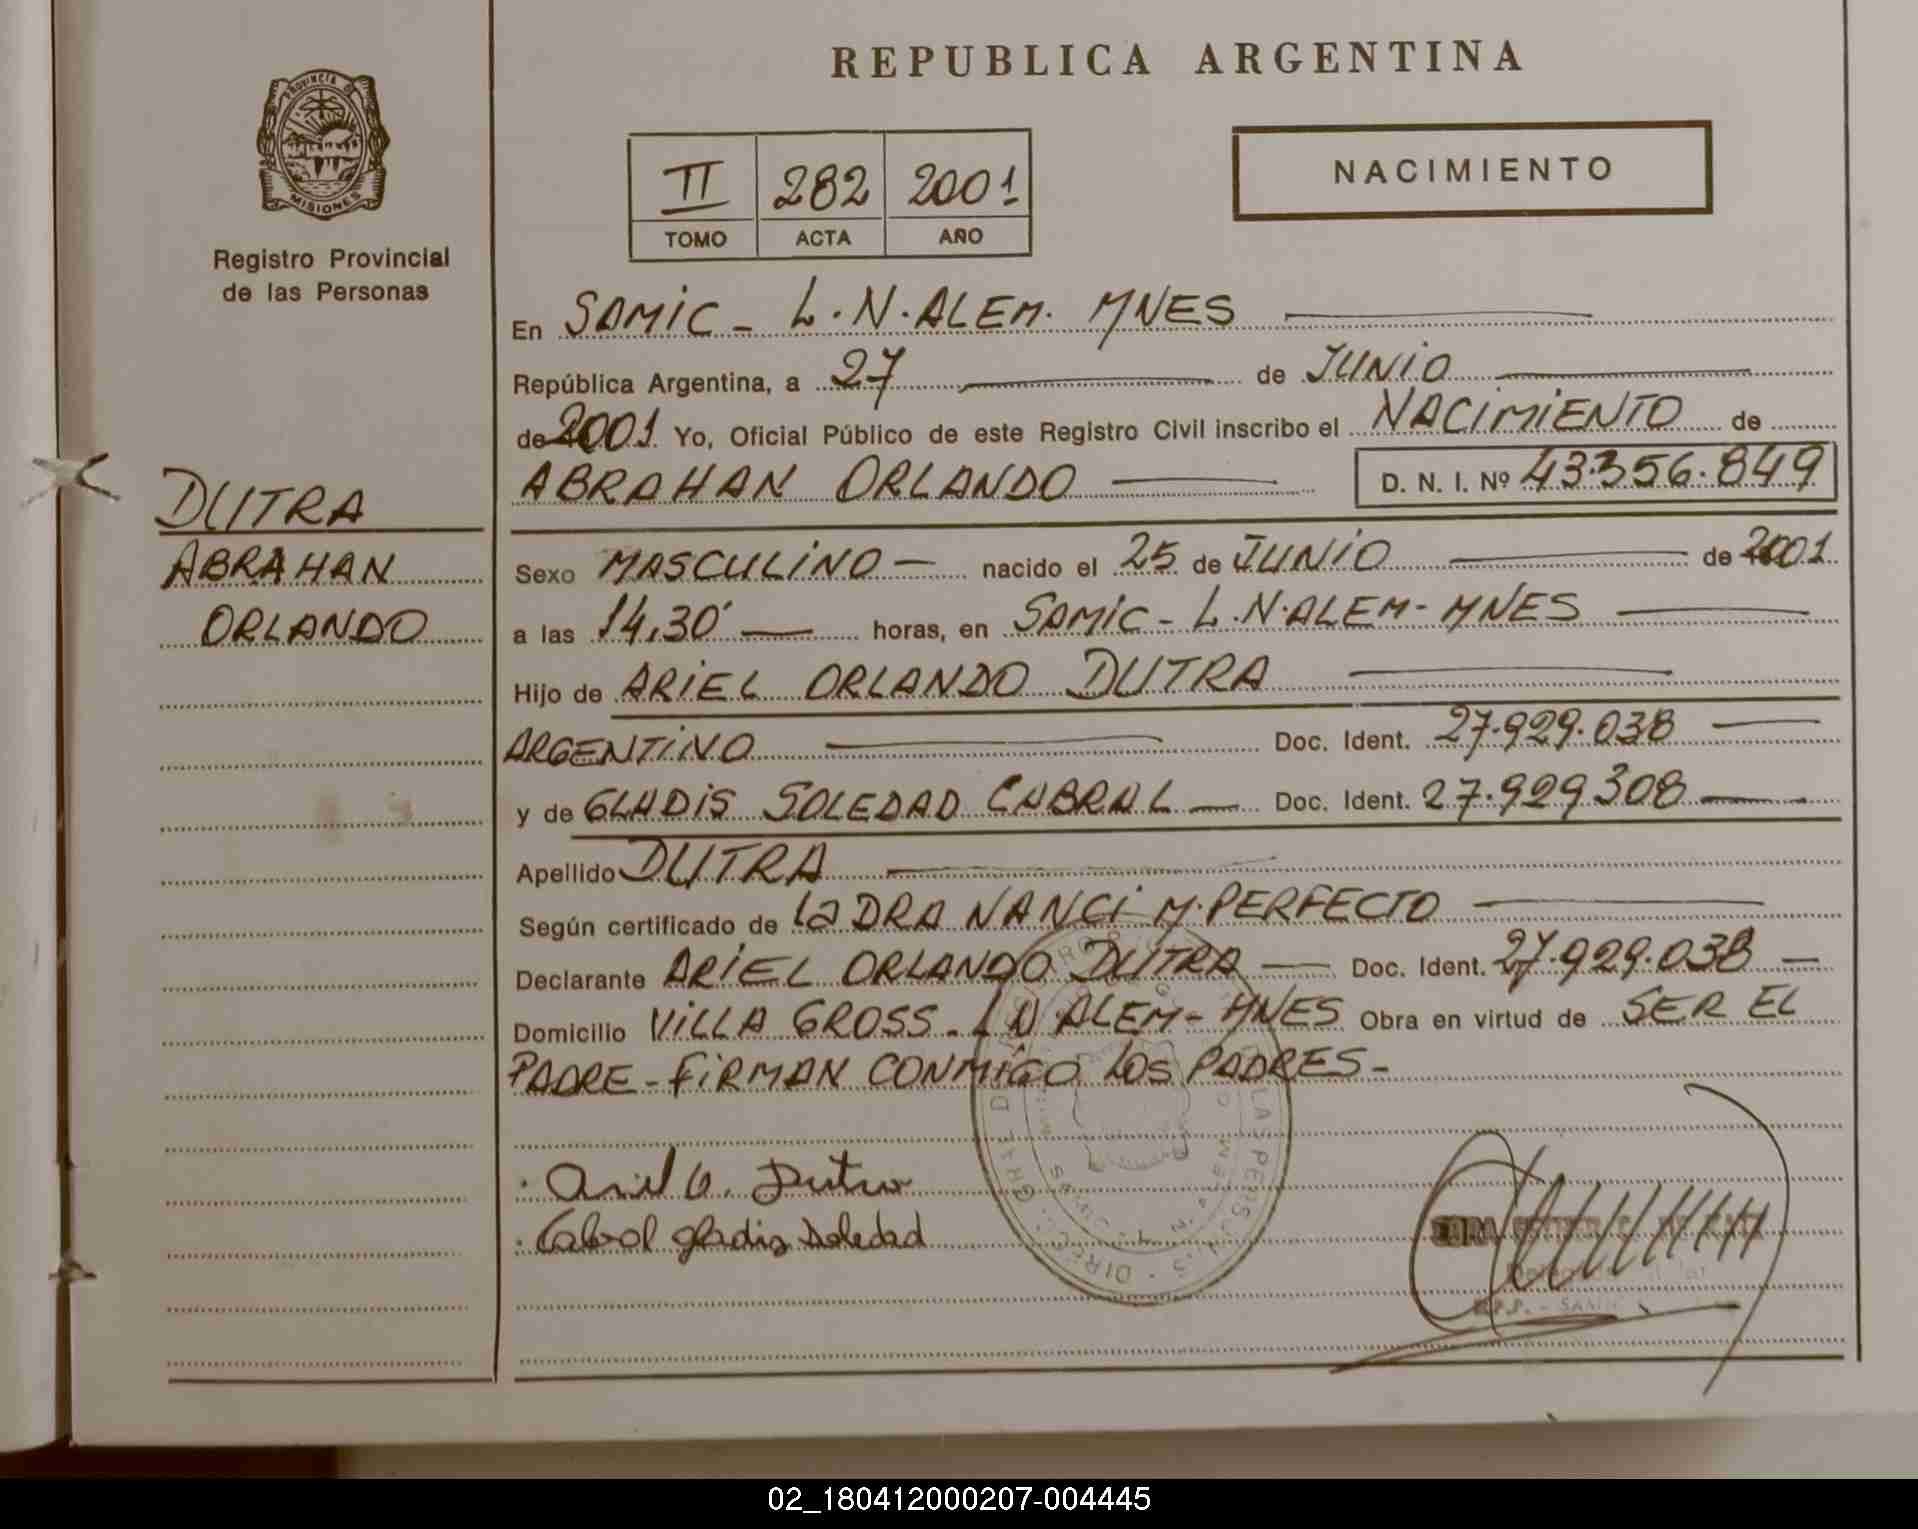 REPUBLICA ARGENTINA
PROVINCIA DE
MISIONES
Registro Provincial
de las Personas
II 282 2001
TOMO ACTA AÑO
NACIMIENTO
En SAMIC - L.N.ALEM. MNES
República Argentina, a 27 de JUNIO
de 2001 Yo, Oficial Público de este Registro Civil inscribo el NACIMIENTO de
ABRAHAN ORLANDO D. N. I. Nº 43.356.849
DUTRA
ABRAHAN
ORLANDO
Sexo MASCULINO - nacido el 25 de JUNIO de 2001
a las 14,30' horas, en SAMIC - L.N.ALEM - MNES
Hijo de ARIEL ORLANDO DUTRA
ARGENTINO Doc. Ident. 27.929.038
y de GLADIS SOLEDAD CABRAL Doc. Ident. 27.929308
Apellido DUTRA
Según certificado de La DRA NANCI M. PERFECTO
Declarante ARIEL ORLANDO DUTRA Doc. Ident. 27.929.038
Domicilio VILLA GROSS - L N. ALEM - MNES Obra en virtud de SER EL
PADRE - FIRMAN CONMIGO LOS PADRES -
Ariel O. Dutra
Cabral Gladis Soledad
02_180412000207-004445